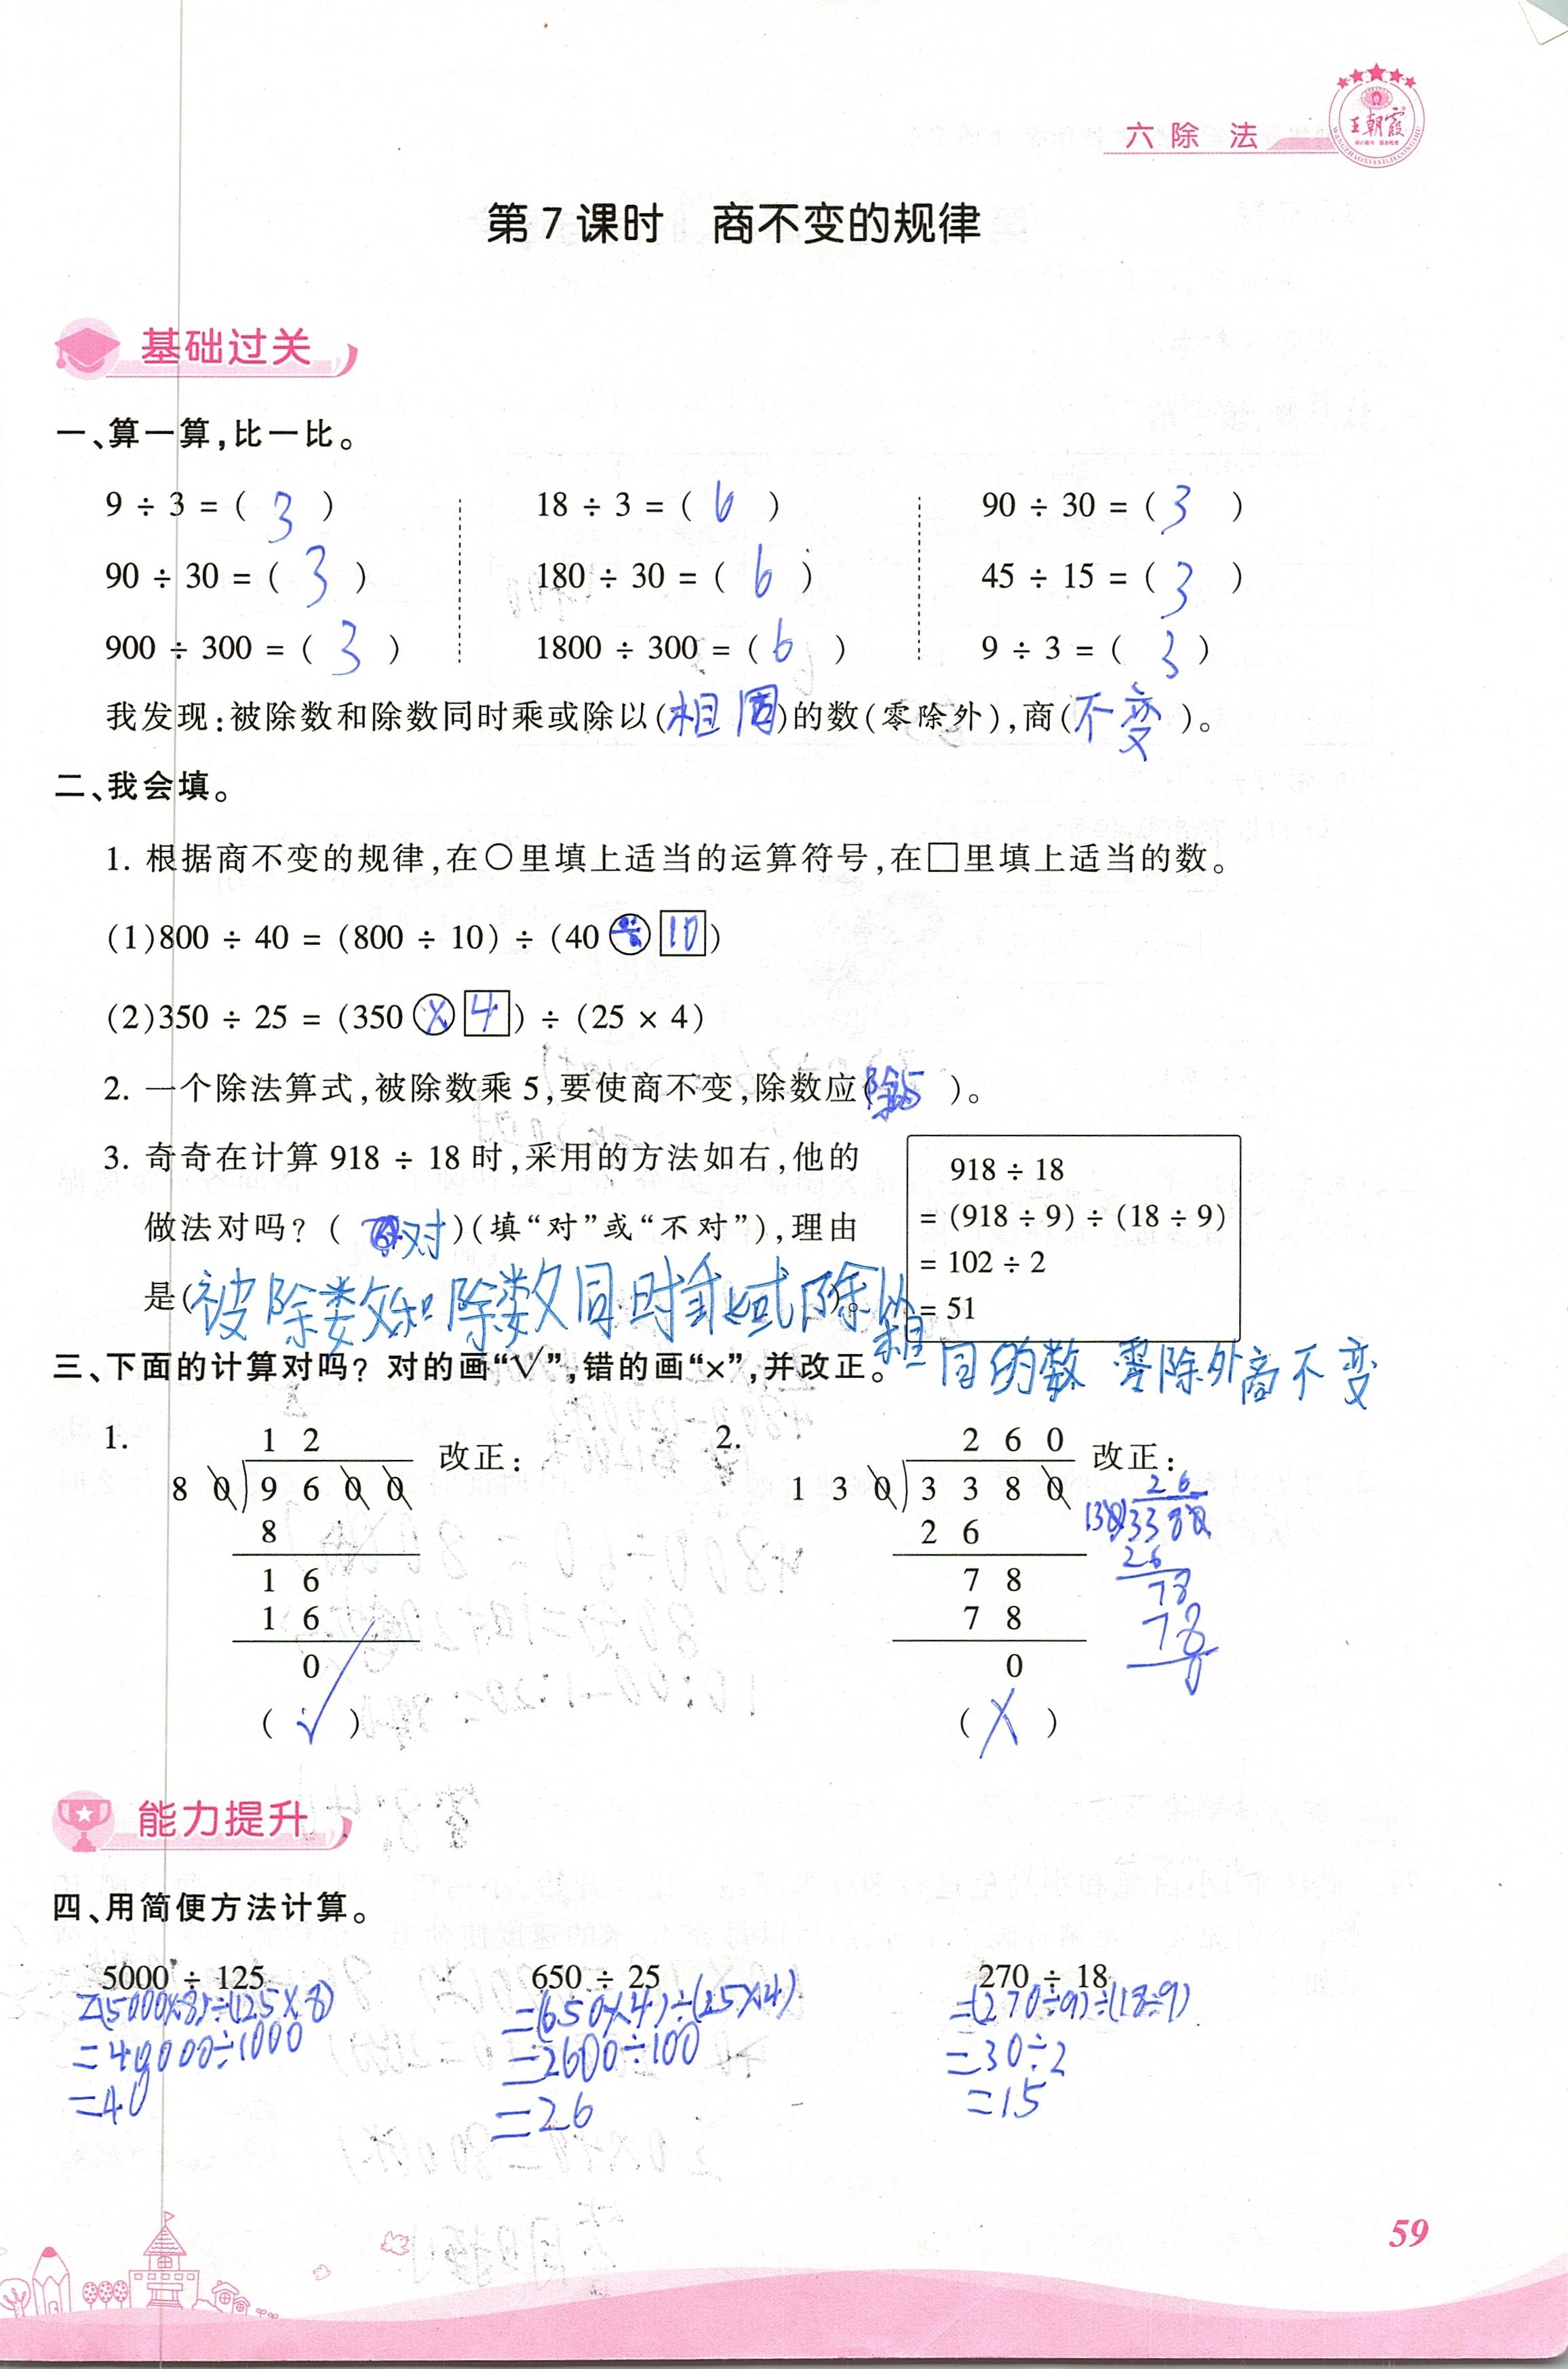 六 除 法
王朝霞
第 7 课时 商不变的规律
基础过关
一、算一算,比一比。
9 ÷ 3 = ( 3 ) 18 ÷ 3 = ( 6 ) 90 ÷ 30 = ( 3 )
90 ÷ 30 = ( 3 ) 180 ÷ 30 = ( 6 ) 45 ÷ 15 = ( 3 )
900 ÷ 300 = ( 3 ) 1800 ÷ 300 = ( 6 ) 9 ÷ 3 = ( 3 )
我发现:被除数和除数同时乘或除以(相同)的数(零除外),商(不变)。
二、我会填。
1. 根据商不变的规律,在○里填上适当的运算符号,在□里填上适当的数。
(1)800 ÷ 40 = (800 ÷ 10) ÷ (40 ÷ 10)
(2)350 ÷ 25 = (350 × 4) ÷ (25 × 4)
2. 一个除法算式,被除数乘 5,要使商不变,除数应( )。
3. 奇奇在计算 918 ÷ 18 时,采用的方法如右,他的
做法对吗? ( 对 )(填“对”或“不对”),理由
是(被除数和除数同时乘或除以)。
相同的数 零除外商不变
918 ÷ 18
= (918 ÷ 9) ÷ (18 ÷ 9)
= 102 ÷ 2
= 51
三、下面的计算对吗? 对的画“√”,错的画“×”,并改正。
1. 1 2 改正:
8 0 9 6 0 0
8
1 6
1 6
0
( √ )
2. 2 6 0 改正:
1 3 0 3 3 8 0
2 6
7 8
7 8
0
( × )
26
130 3380
26
78
78
0
能力提升
四、用简便方法计算。
5000 ÷ 125 650 ÷ 25 270 ÷ 18
=(5000×8)÷(125×8) =(650×4)÷(25×4) =(270÷9)÷(18÷9)
=40000÷1000 =2600÷100 =30÷2
=40 =26 =15
59